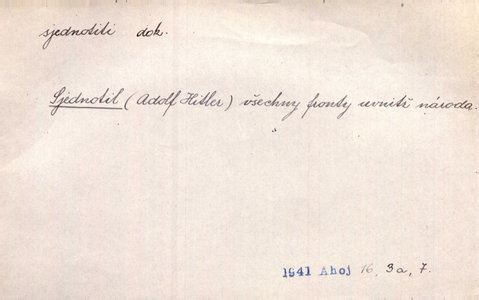 sjednotiti dok.
Sjednotil (Adolf Hitler) všechny fronty uvnitř národa.
1941 Ahoj 16, 3a, 7.